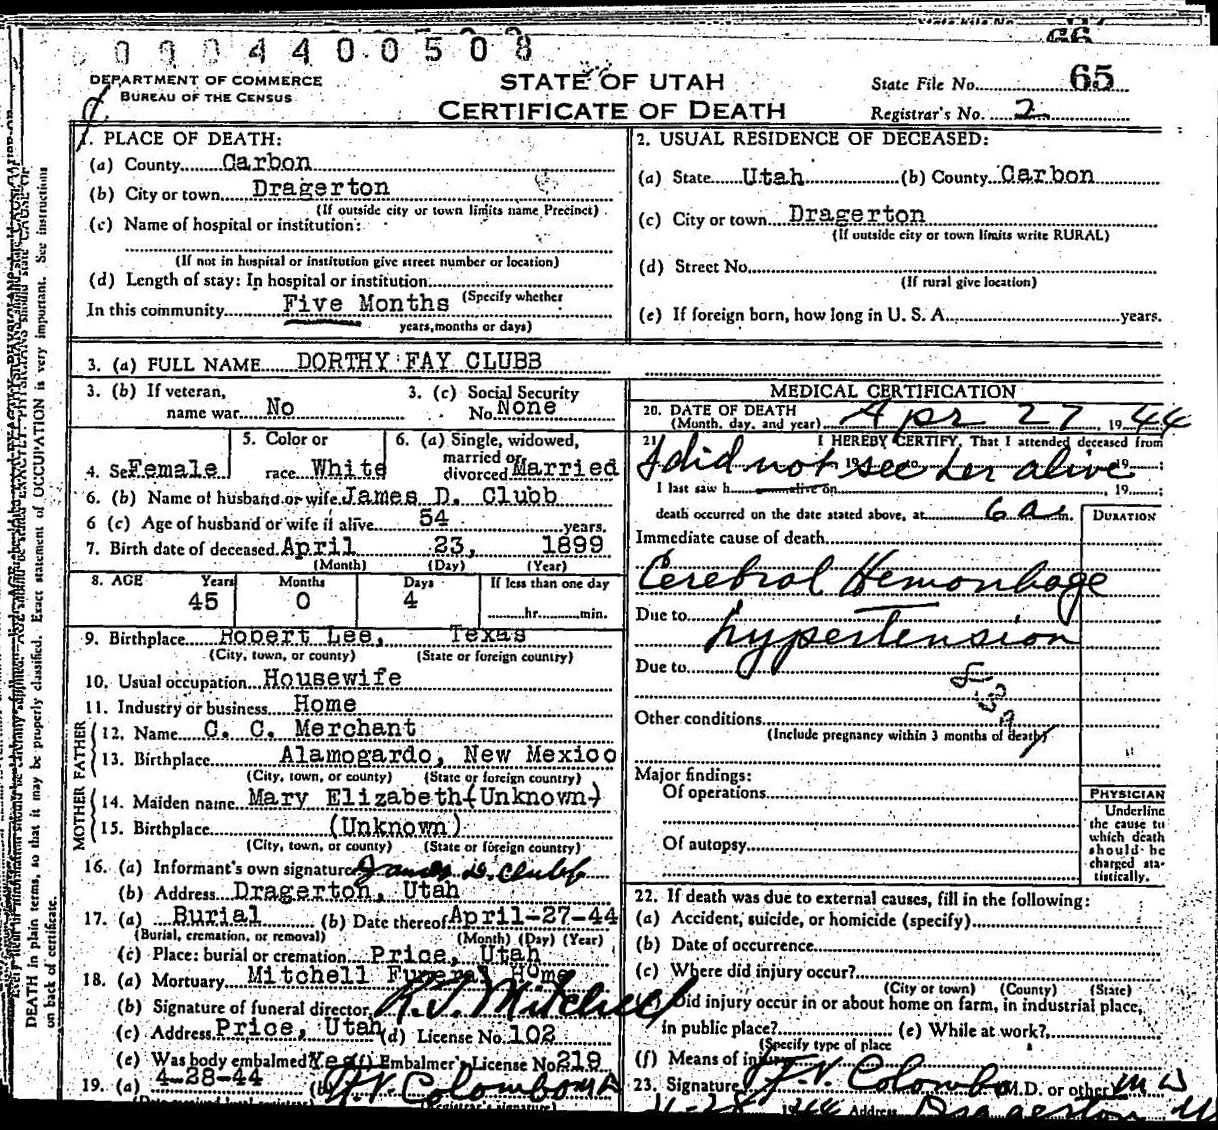 0 0 0 4 4 0 0 5 0 8
66
DEPARTMENT OF COMMERCE
BUREAU OF THE CENSUS
STATE OF UTAH
CERTIFICATE OF DEATH
State File No. 65
Registrar's No. 2
1. PLACE OF DEATH:
(a) County Carbon
(b) City or town Dragerton
(If outside city or town limits name Precinct)
(c) Name of hospital or institution:
(If not in hospital or institution give street number or location)
(d) Length of stay: In hospital or institution
(Specify whether
In this community Five Months
years, months or days)
2. USUAL RESIDENCE OF DECEASED:
(a) State Utah (b) County Carbon
(c) City or town Dragerton
(If outside city or town limits write RURAL)
(d) Street No.
(If rural give location)
(e) If foreign born, how long in U. S. A. years.
3. (a) FULL NAME DORTHY FAY CLUBB
3. (b) If veteran, name war No
3. (c) Social Security No. None
4. Sex Female
5. Color or race White
6. (a) Single, widowed, married or divorced Married
6. (b) Name of husband or wife James D. Clubb
6 (c) Age of husband or wife if alive 54 years.
7. Birth date of deceased April 23, 1899
(Month) (Day) (Year)
8. AGE Years Months Days If less than one day
45 0 4 hr. min.
9. Birthplace Robert Lee, Texas
(City, town, or county) (State or foreign country)
10. Usual occupation Housewife
11. Industry or business Home
FATHER
12. Name C. C. Merchant
13. Birthplace Alamogardo, New Mexico
(City, town, or county) (State or foreign country)
MOTHER
14. Maiden name Mary Elizabeth (Unknown)
15. Birthplace (Unknown)
(City, town, or county) (State or foreign country)
16. (a) Informant's own signature James D. Clubb
(b) Address Dragerton, Utah
17. (a) Burial (b) Date thereof April-27-44
(Burial, cremation, or removal) (Month) (Day) (Year)
(c) Place: burial or cremation Price, Utah
18. (a) Mortuary Mitchell Funeral Home
(b) Signature of funeral director R.J. Mitchell
(c) Address Price, Utah (d) License No. 102
(e) Was body embalmed? Yes (f) Embalmer's License No. 219
19. (a) 4-28-44 (b) F.V. Colombo MD
MEDICAL CERTIFICATION
20. DATE OF DEATH
(Month, day, and year) Apr 27, 1944
21. I HEREBY CERTIFY, That I attended deceased from
I did not see her alive
19 to 19 ;
I last saw h alive on , 19 ;
death occurred on the date stated above, at 6 a m.
DURATION
Immediate cause of death
Cerebral Hemorrhage
Due to hypertension
Due to
Other conditions
(Include pregnancy within 3 months of death)
Major findings:
Of operations
Of autopsy
PHYSICIAN
Underline
the cause to
which death
should be
charged sta-
tistically.
22. If death was due to external causes, fill in the following:
(a) Accident, suicide, or homicide (specify)
(b) Date of occurrence
(c) Where did injury occur?
(City or town) (County) (State)
Did injury occur in or about home on farm, in industrial place,
in public place? (e) While at work?
(Specify type of place
(f) Means of injury
23. Signature F.V. Colombo M.D. or other MD
4-28 1944 Address Dragerton
DEATH in plain terms, so that it may be properly classified. Exact statement of OCCUPATION is very important. See instructions
on back of certificate.